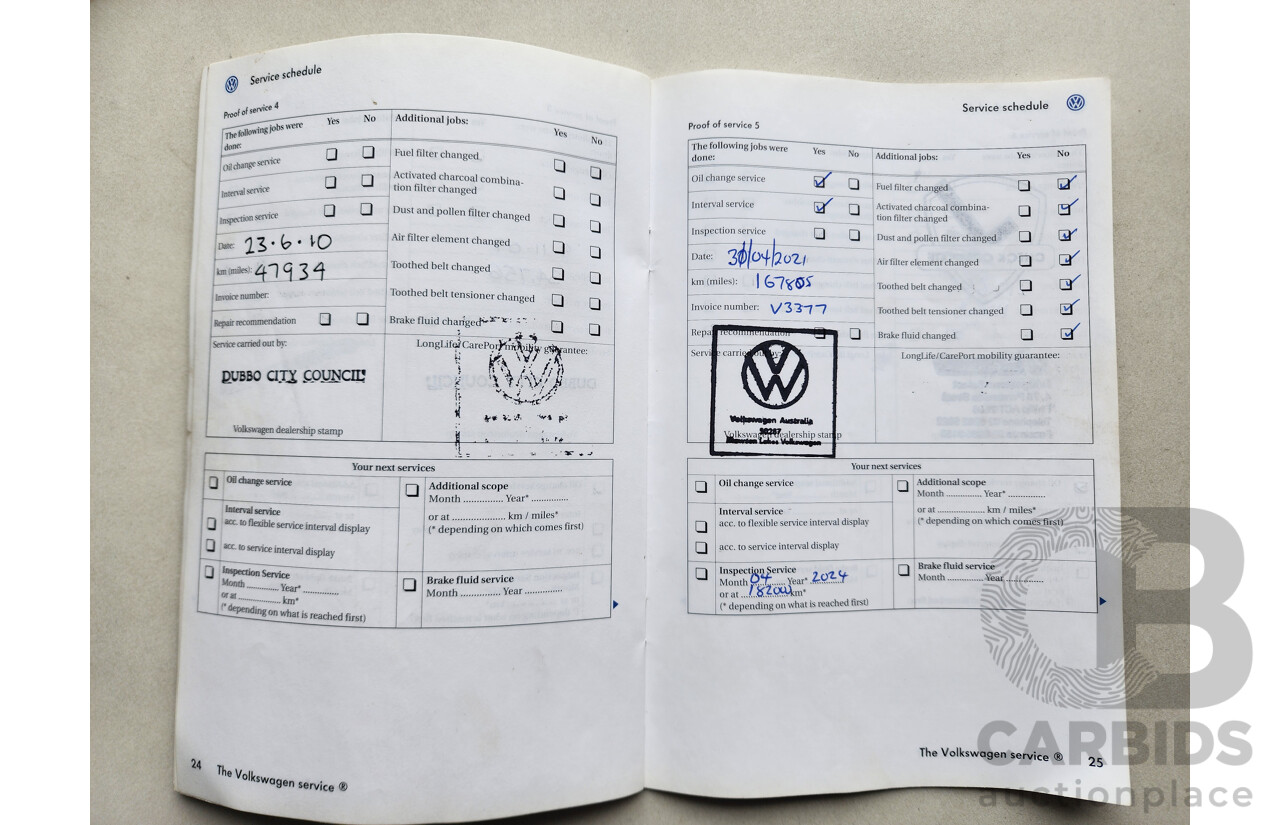 Service schedule
Proof of service 4
The following jobs were done: Yes No
Oil change service
Interval service
Inspection service
Date: 23.6.10
km (miles): 47934
Invoice number:
Repair recommendation
Service carried out by:
DUBBO CITY COUNCIL
Volkswagen dealership stamp
Additional jobs: Yes No
Fuel filter changed
Activated charcoal combina-
tion filter changed
Dust and pollen filter changed
Air filter element changed
Toothed belt changed
Toothed belt tensioner changed
Brake fluid changed
LongLife/CarePort mobility guarantee:
Your next services
Oil change service
Interval service
acc. to flexible service interval display
acc. to service interval display
Inspection Service
Month ........... Year* ............
or at ............... km*
(* depending on what is reached first)
Additional scope
Month .............. Year* .............
or at .................... km / miles*
(* depending on which comes first)
Brake fluid service
Month .............. Year .............
24 The Volkswagen service ®
Service schedule
Proof of service 5
The following jobs were
done: Yes No
Oil change service
Interval service
Inspection service
Date: 30/04/2021
km (miles): 167805
Invoice number: V3377
Repair recommendation
Service carried out by:
Volkswagen Australia
Volkswagen dealership stamp
Additional jobs: Yes No
Fuel filter changed
Activated charcoal combina-
tion filter changed
Dust and pollen filter changed
Air filter element changed
Toothed belt changed
Toothed belt tensioner changed
Brake fluid changed
LongLife/CarePort mobility guarantee:
Your next services
Oil change service
Interval service
acc. to flexible service interval display
acc. to service interval display
Inspection Service
Month 04 Year* 2024
or at 182000 km*
(* depending on what is reached first)
Additional scope
Month ............ Year* .............
or at ................ km / miles*
(* depending on which comes first)
Brake fluid service
Month ............ Year .............
The Volkswagen service ® 25
CARBIDS
auctionplace